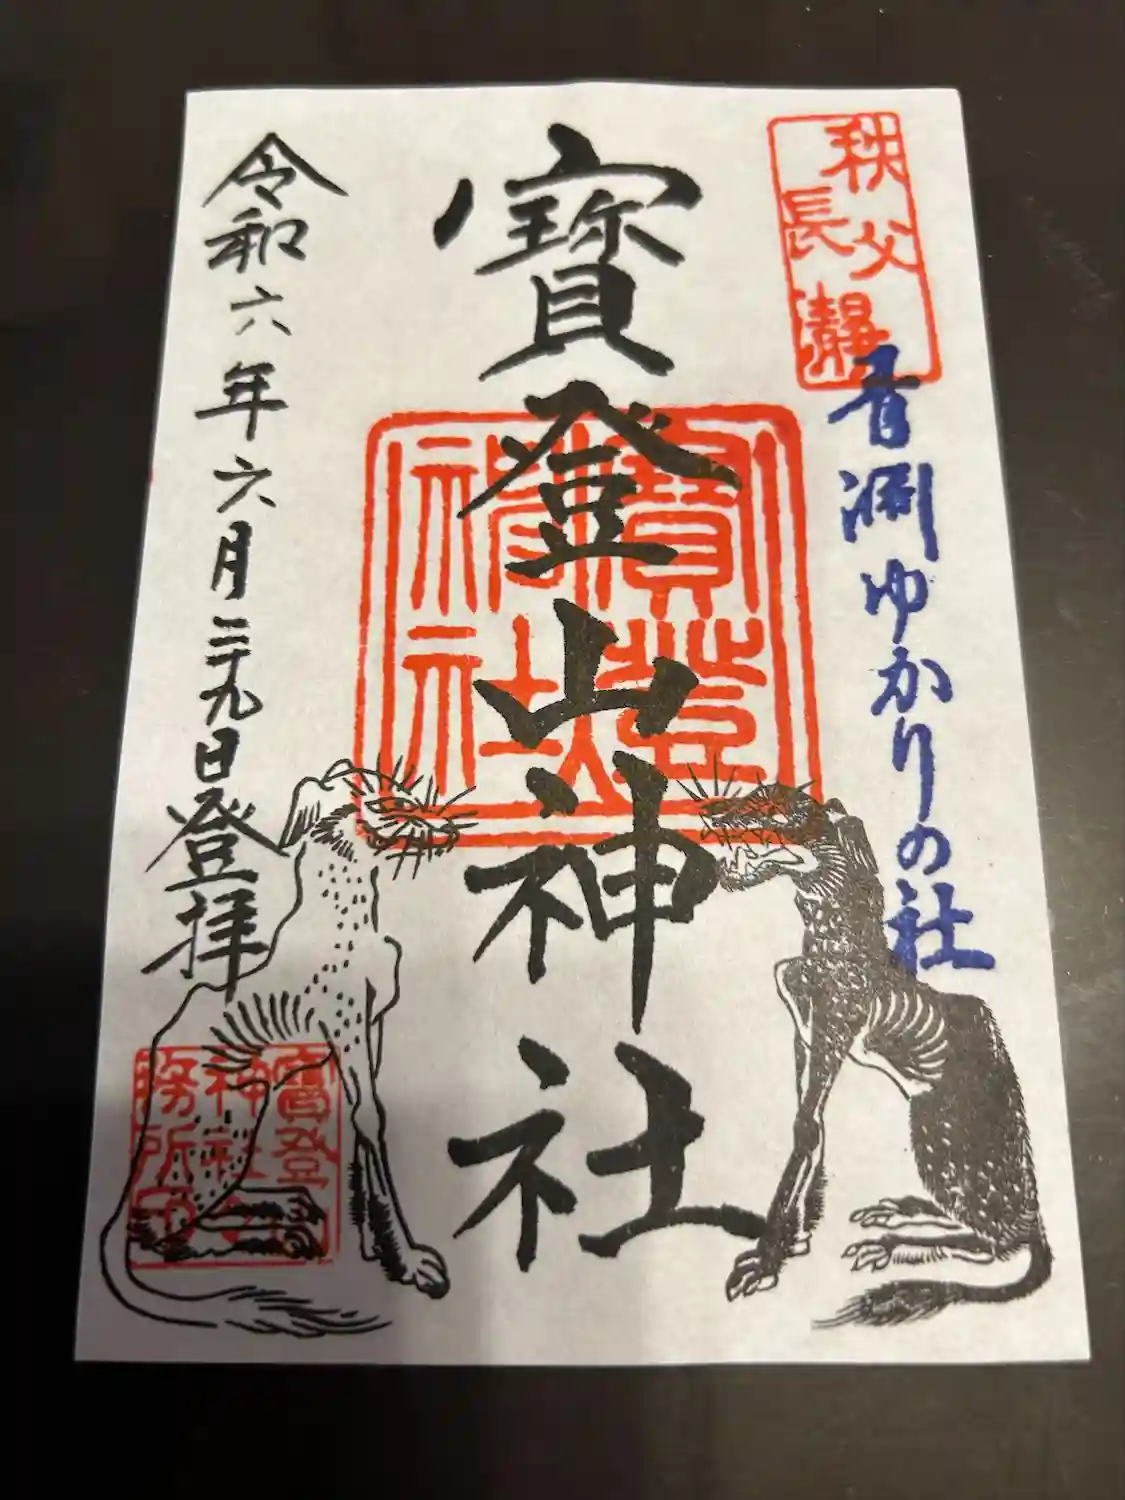 秩父
長瀞
青淵ゆかりの社
寶登山神社
寶登
神社
令和六年六月二十九日登拝
寶登山
神社社
務所印